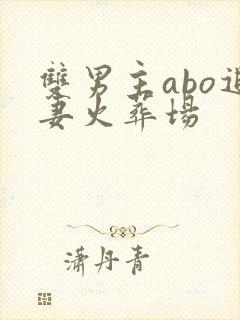 双男主abo追
妻火葬场
潇丹青